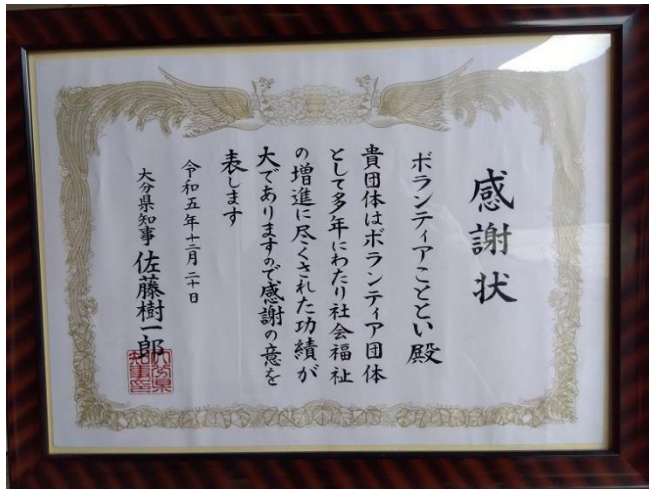 感謝状
ボランティアこととい殿
貴団体はボランティア団体
として多年にわたり社会福祉
の増進に尽くされた功績が
大でありますので感謝の意を
表します
令和五年十二月二十日
大分県知事 佐藤樹一郎
大分県知事印